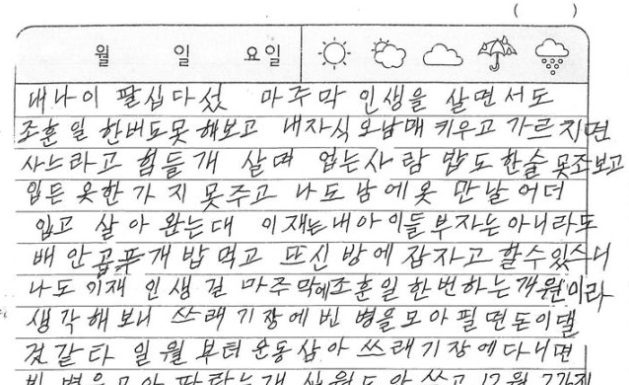 ( )
월 일 요일
내나이 팔십다섯 마주막 인생을 살면서도
조훈일 한버도못 해보고 내자식오남매 키우고 가르치면
사느라고 힘들개 살며 업는사람 밥도한술못조보고
입든 옷한가지못주고 나도남에옷 만날어더
입고 살아 완는대 이재는내아이들부자는아니라도
배안곱푸개밥먹고 뜨신 방에 잠자고 할수있스니
나도 이재 인생길 마주막에조훈일한번하는개원이라
생각해보니 쓰래기장에빈병을모아필면돈이댈
것같타 일월부터운동삼아쓰래기장에다니면
빈병을모아파란는개 쓰고 12월